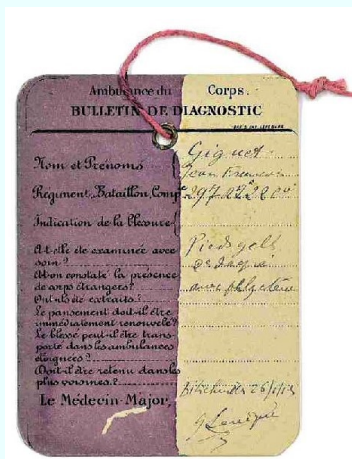 Ambulance du Corps.
BULLETIN DE DIAGNOSTIC
Nom et Prénoms Giguet
Jean François
Régiment, Bataillon, Comp 297
Indication de la Blessure
A t-elle été examinée avec Pieds gelés
soin ?
A t-on constaté la présence
de corps étrangers ? avec phlyctènes
Ont-ils été extraits ?
Le pansement doit-il être
immédiatement renouvelé ?
Le blessé peut-il être trans
porté dans les ambulances
éloignées ?
Doit-il être retenu dans les
plus voisines ?
Le Médecin-Major,